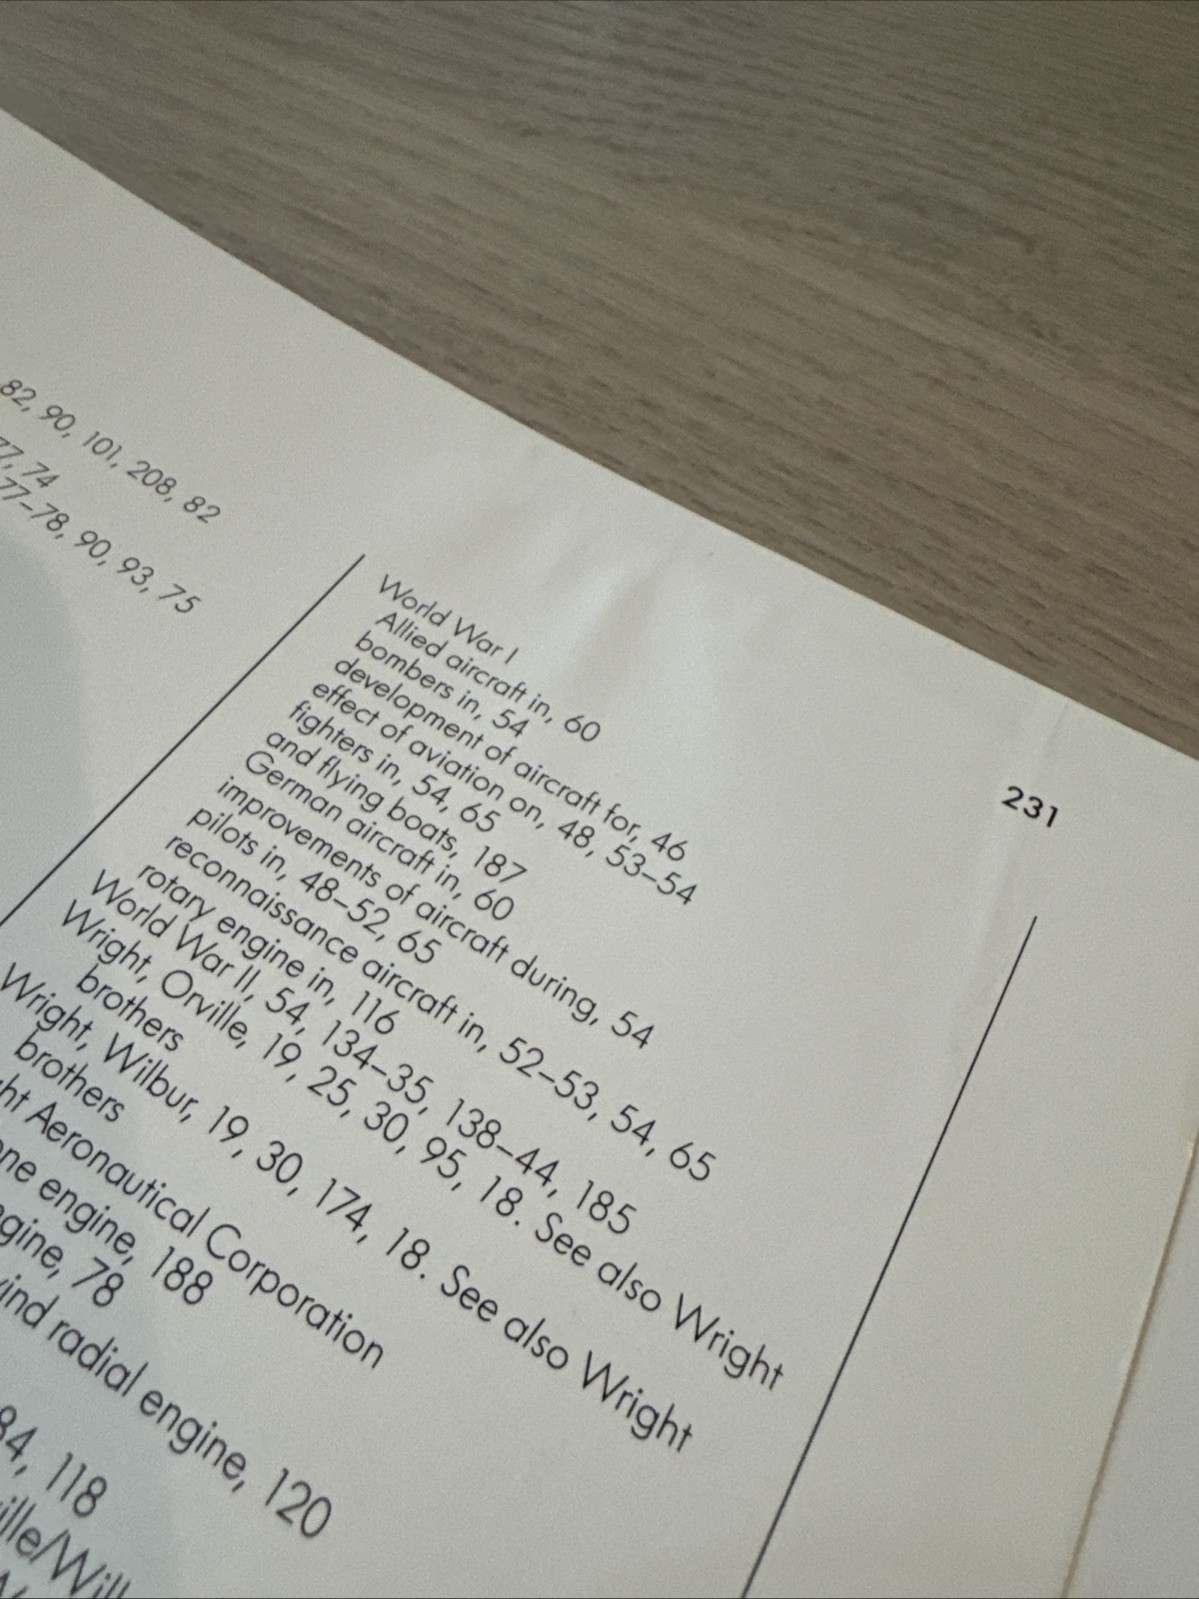 82, 90, 101, 208, 82
77, 74
77–78, 90, 93, 75
231
World War I
Allied aircraft in, 60
bombers in, 54
development of aircraft for, 46
effect of aviation on, 48, 53–54
fighters in, 54, 65
and flying boats, 187
German aircraft in, 60
improvements of aircraft during, 54
pilots in, 48–52, 65
reconnaissance aircraft in, 52–53, 54, 65
rotary engine in, 116
World War II, 54, 134–35, 138–44, 185
Wright, Orville, 19, 25, 30, 95, 18. See also Wright
brothers
Wright, Wilbur, 19, 30, 174, 18. See also Wright
brothers
Aeronautical Corporation
engine, 188
78
radial engine, 120
118